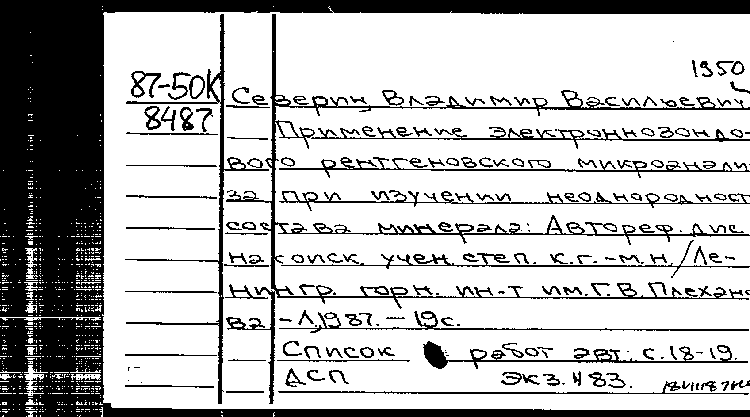 1950
87-50К
8487
Северин, Владимир Васильевич
Применение электроннозондо-
вого рентгеновского микроанали-
за при изучении неоднородност
состава минерала: Автореф. дис.
на соиск. учен. степ. к.г.-м.н. / Ле-
нингр. горн. ин-т им. Г.В. Плехано
ва - Л, 1987. - 19 с.
Список работ авт.: с. 18-19.
ДСП Экз. N 83.